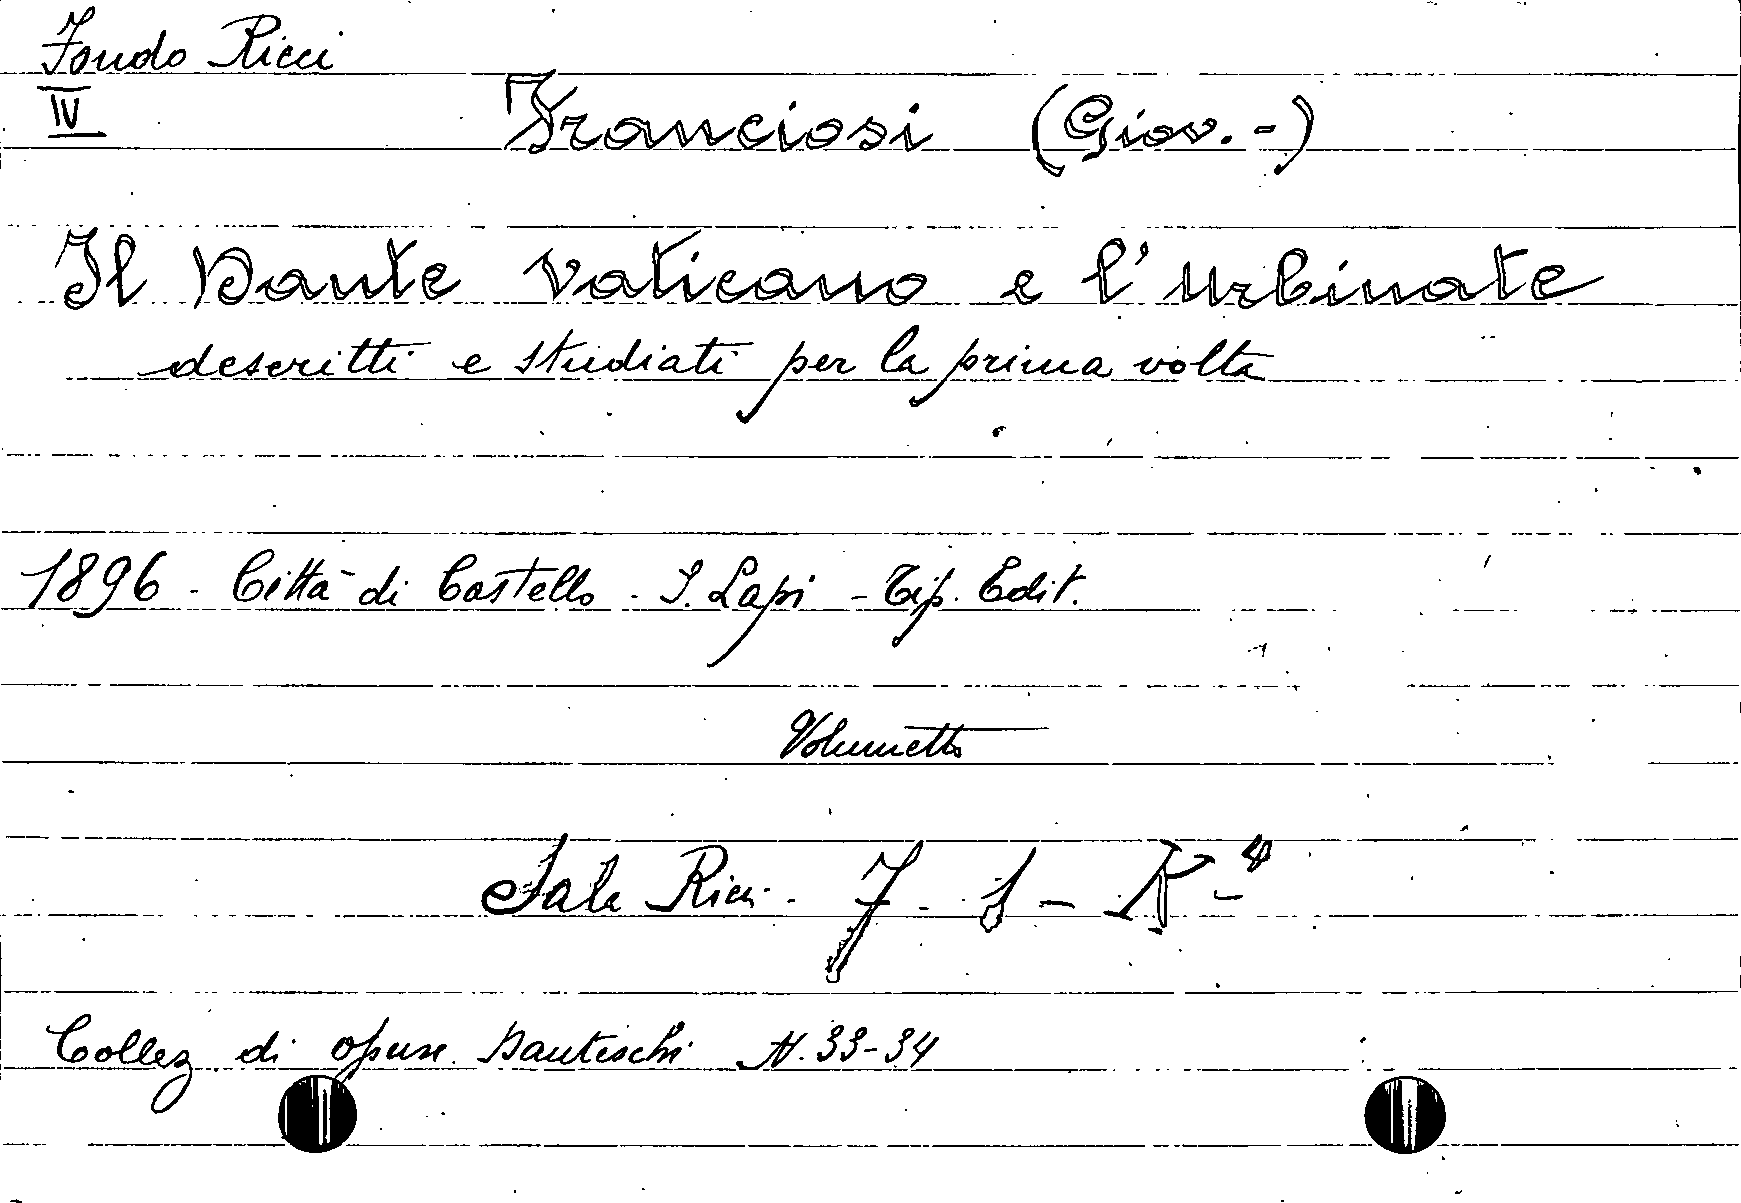 Fondo Ricci
IV
Franciosi (Giov. -)
Il Dante Vaticano e l'Urbinate
descritti e studiati per la prima volta
1896 - Città di Castello - S. Lapi - Tip. Edit.
Volumetto
Sala Ricci - 7 - S - K - 4
Collez. di opusc. Danteschi N. 33-34